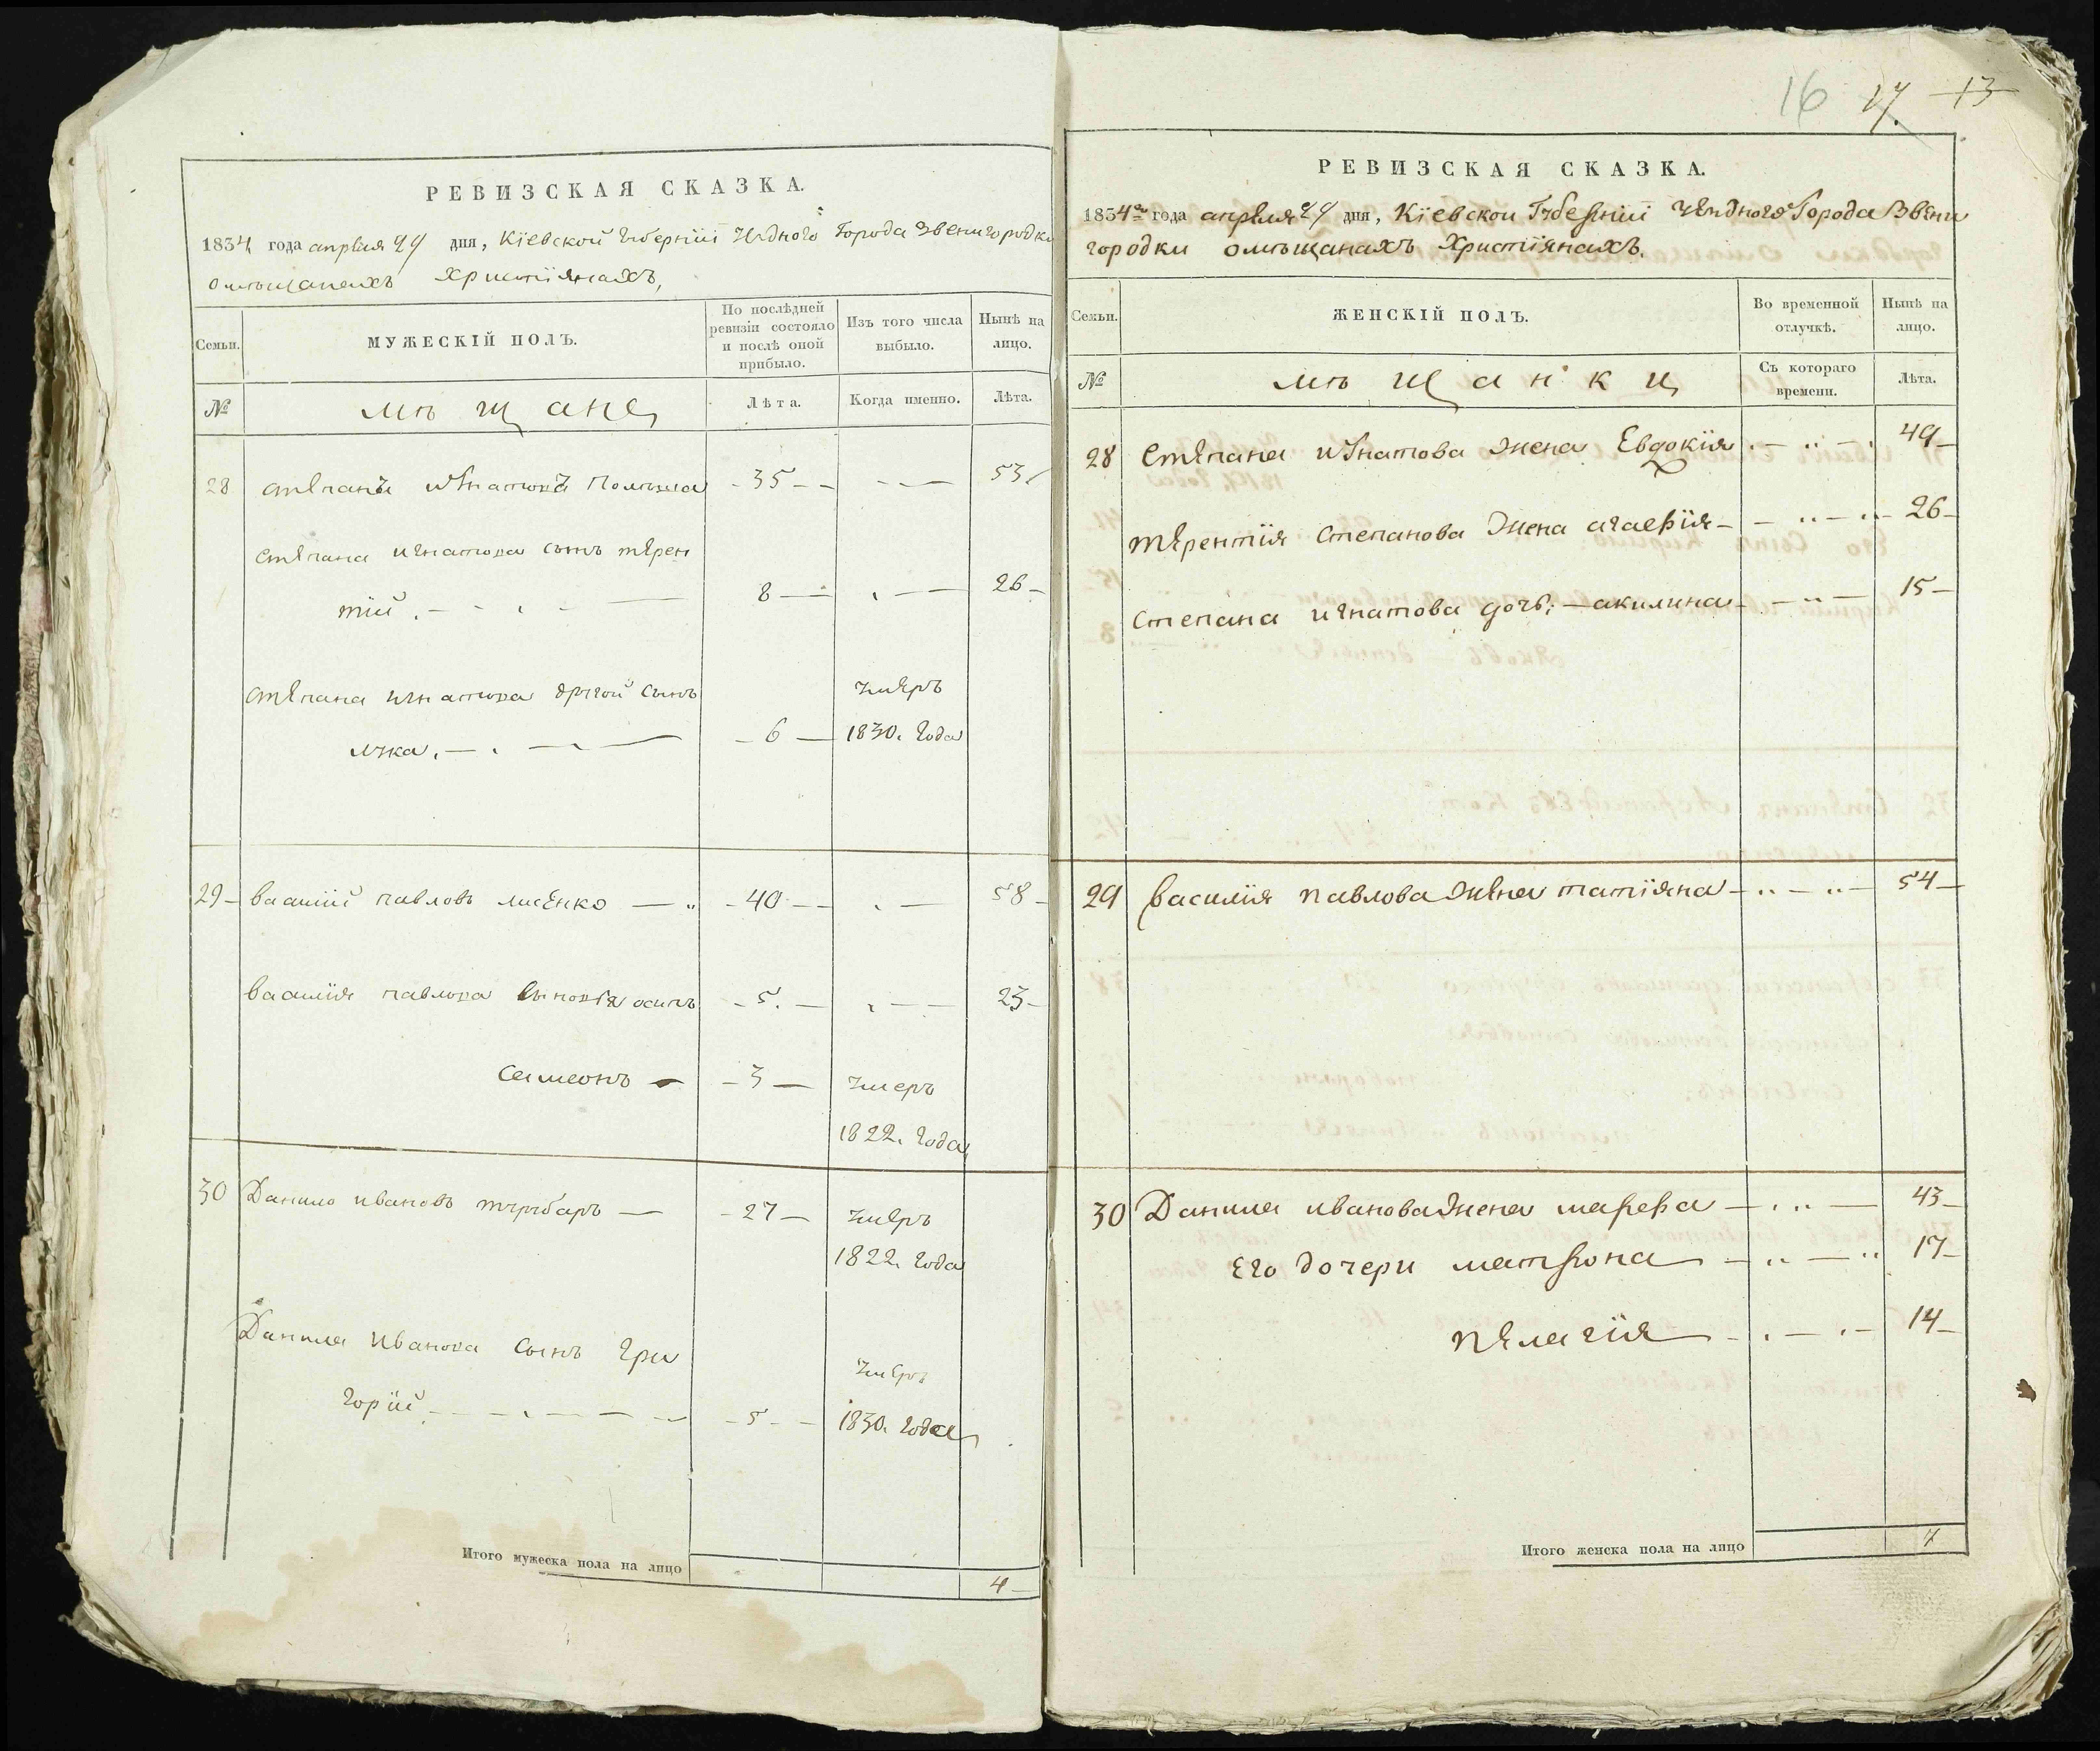 РЕВИЗСКАЯ СКАЗКА.
1834 года апреля 29 дня, Кіевской губерніи уездного Города Звенигородки
о мѣщанахъ христіянахъ,
Семьи.
МУЖЕСКІЙ ПОЛЪ.
По послѣдней ревизіи состояло и послѣ оной прибыло.
Изъ того числа выбыло.
Нынѣ на лицо.
№
мѣщане
Лѣта.
Когда именно.
Лѣта.
28 степанъ игнатовъ - 35 - - 53
степана игнатова сынъ терен
тій. 8 26
степана игнатова другой сынъ умеръ
лука. 6 1830. года
29 василій павловъ лисенко 40 58
василія павлова сыновья осипъ 5. 23
семеонъ 3 умеръ
1822. года
30 Данило ивановъ 27 умеръ
1822. года
Данила Иванова сынъ гри
умеръ
горій 5 1830. года
Итого мужеска пола на лицо
4
16 17. 13
РЕВИЗСКАЯ СКАЗКА.
1834го года апреля 29 дня, Кіевской Губерніи уездного Города Звени
городки о мѣщанахъ Христіянахъ.
Семьи.
ЖЕНСКІЙ ПОЛЪ.
Во временной отлучкѣ.
Нынѣ на лицо.
№
мѣщанки
Съ котораго времени.
Лѣта.
28 степана игнатова жена Евдокія 49
терентія степанова жена агафія 26
степана игнатова дочь: акилина 15
29 василія павлова жена татіяна 54
30 Данила иванова жена марфа 43
Его дочери матрона 17
пелагія 14
Итого женска пола на лицо 7